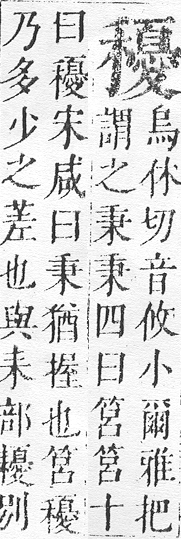 𥣯
烏休切音攸小爾雅把
謂之秉秉四曰筥筥十
曰𥣯宋咸曰秉猶握也筥𥣯
乃多少之差也與耒部耰別